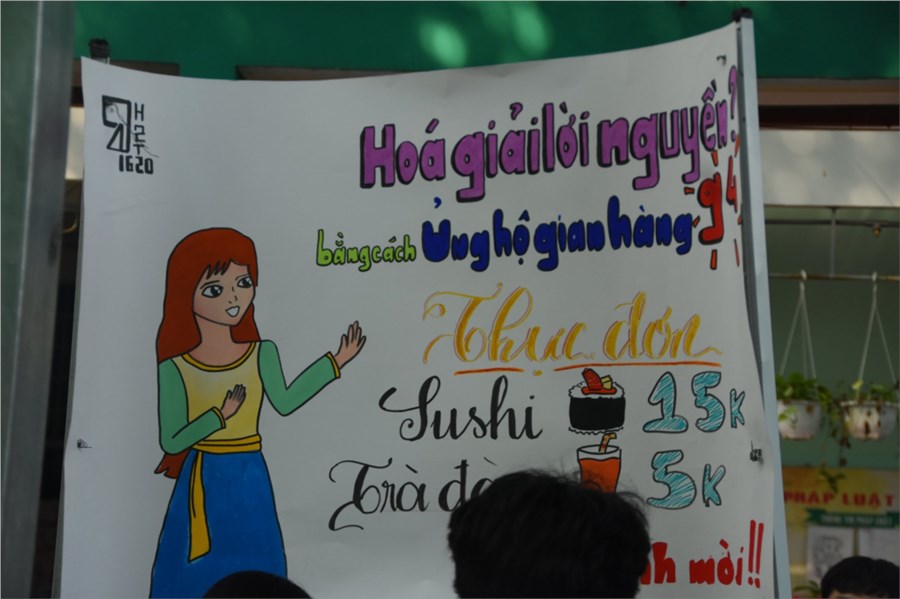 H2T
1620
Hoá giải lời nguyền?
bằng cách Ủng hộ gian hàng 94
Thực đơn
Sushi 15K
Trà 5K
mời!!
PHÁP LUẬT